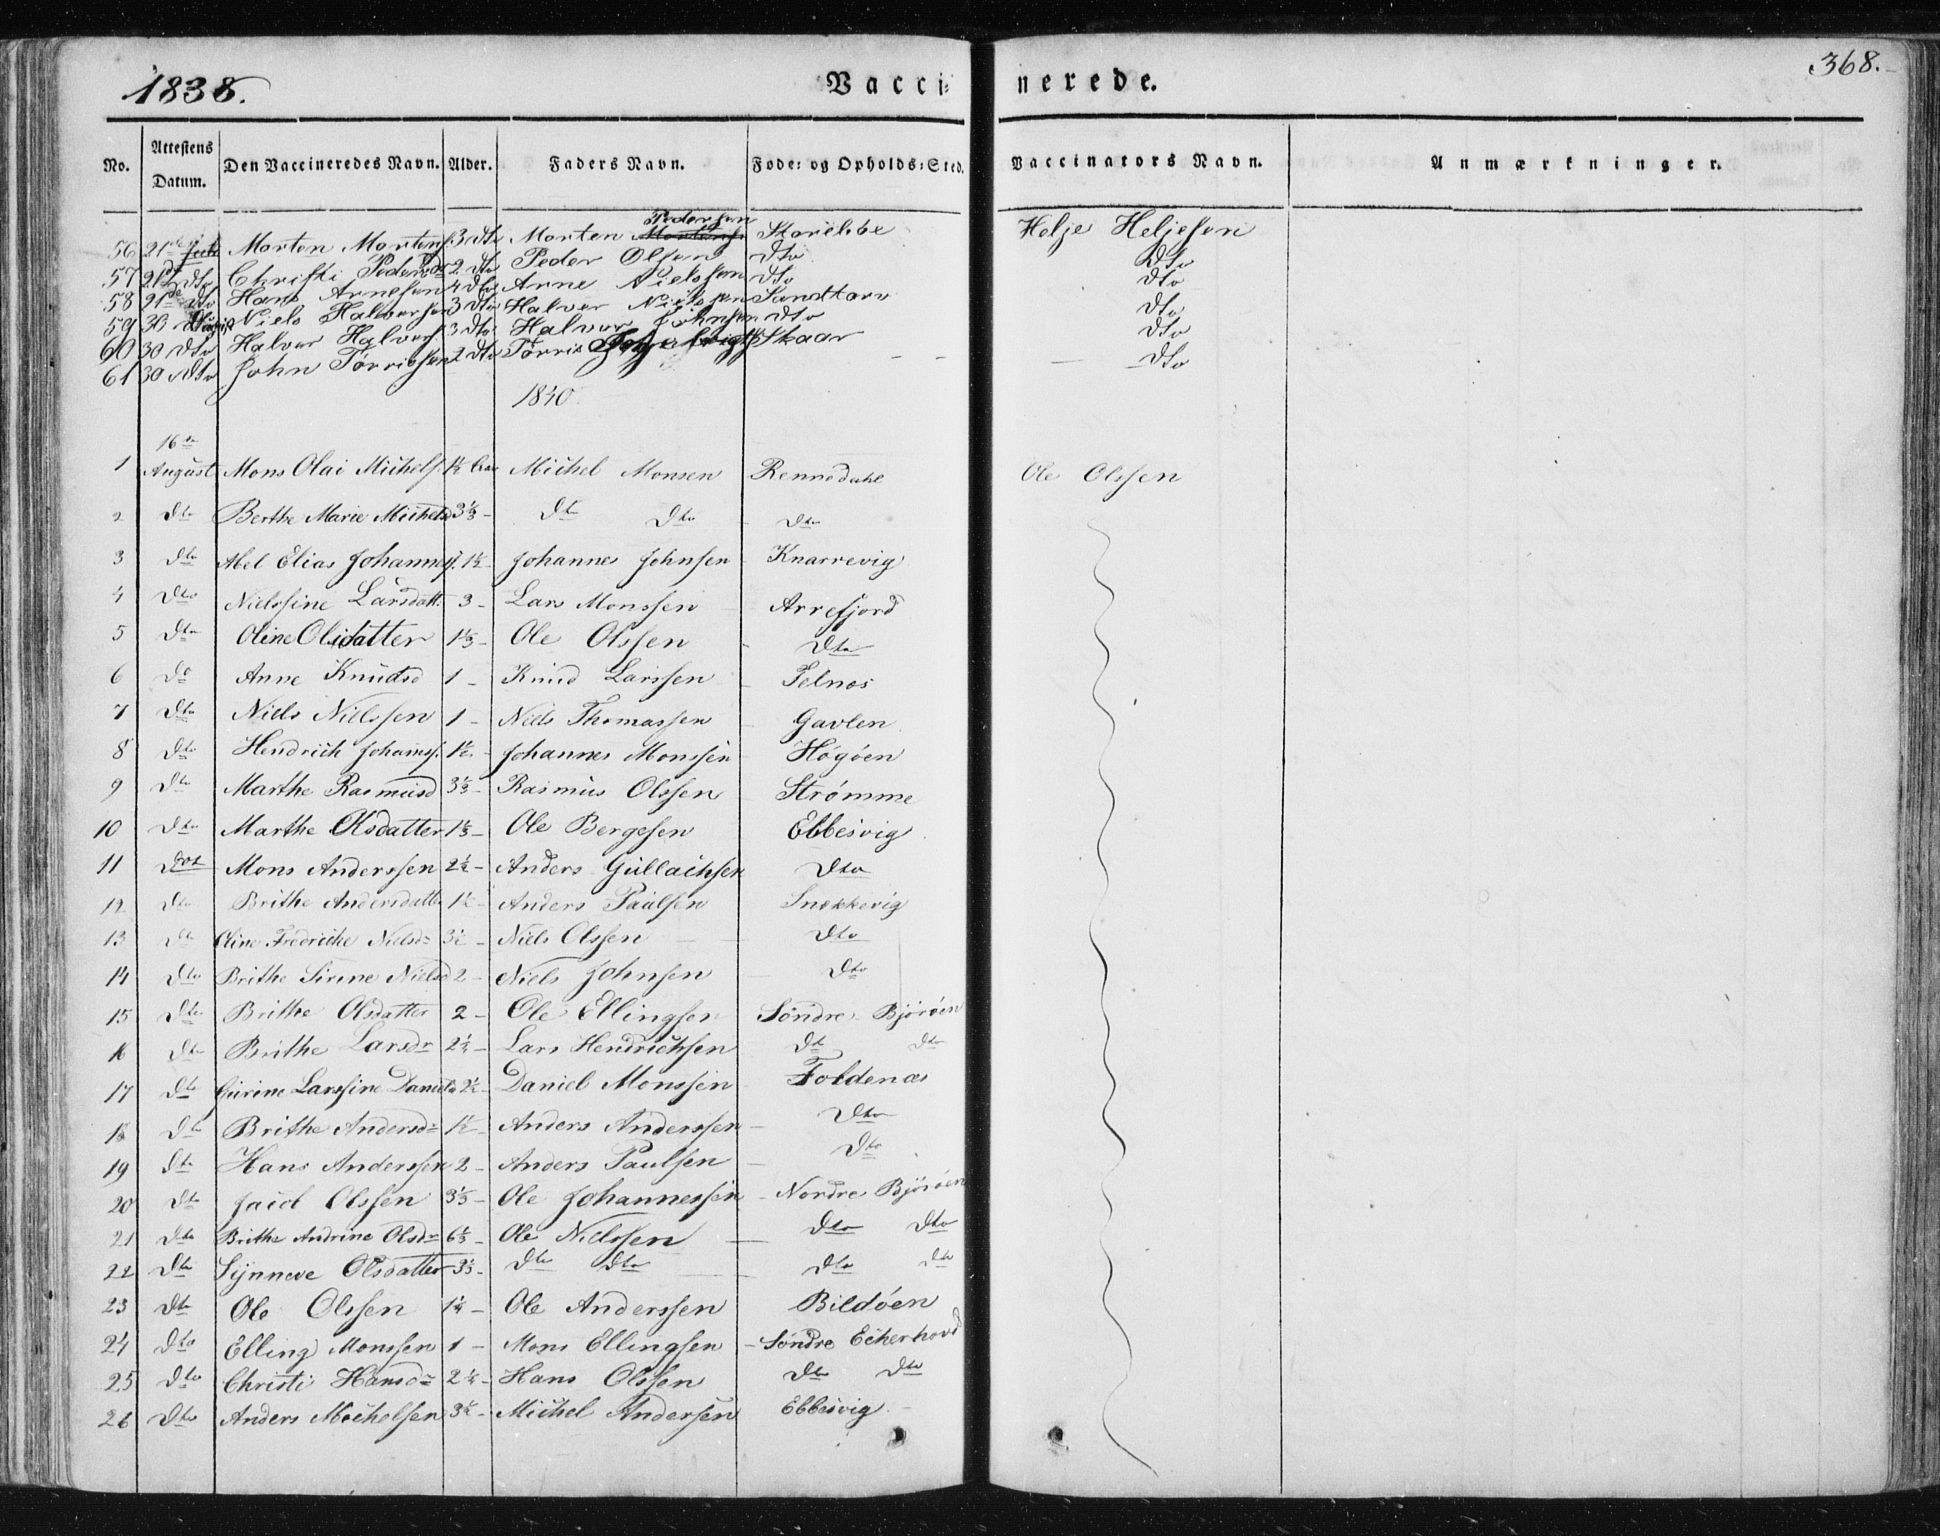 1838.
Vacci=
nerede.
368.
No. Attestens Datum. Den Vaccineredes Navn. Alder. Faders Navn. Føde= og Opholds=Sted. Vaccinators Navn. Anmærkninger.
56 21de Juli Morten Mortens. 3 dto Morten Pedersen Helje Heljesen
57 21de dto Christi Pedersdr 2 dto Peder Olsen dto dto
58 21de dto Hans Arnesen 4 dto Arne Nielssen dto dto
59 30 August Niels Halversen 3 dto Halver Nielssen dto
60 30 dto Halver Halvers. 3 dto Halver Johnsen dto dto
61 30 dto John Tørrissen 2 dto Tørris Skaar dto
1840.
1 16de August Mons Olai Michels. 1½ Michel Monsen Ole Olssen
2 dto Berthe Marie Michelsd 3⅓ - dto dto - dto
3 dto Abel Elias Johannes. 1½ - Johannes Johnsen Knarrevig
4 dto Nielssine Larsdatt. 3 - Lars Monssen Arrefjord
5 dto Oline Olsdatter 1⅓ - Ole Olssen dto
6 do Anne Knudsd 1 - Knud Larssen Telnæs
7 dto Niels Nielssen 1 - Niels Thomassen Gavlen
8 dto Hendrich Johanss. 1½ - Johannes Monssen Høgøen
9 dto Marthe Rasmusd 3⅓ - Rasmus Olssen Strømme
10 dto Marthe Olsdatter 1⅓ - Ole Bergesen Ebbesvig
11 dto Mons Anderssen 2½ - Anders Gullachsen dto
12 dto Brithe Andersdatt. 1½ - Anders Paulsen Snekkevig
13 dto Oline Fredrikke Nielsdr 3½ - Niels Olssen dto
14 dto Brithe Sirine Nielsd 2 - Niels Johnsen dto
15 dto Brithe Olsdatter 2 - Ole Ellingsen Søndre Bjørøen
16 dto Brithe Larsdr 2½ - Lars Hendrichsen dto dto
17 dto Larssine Daniels 2½ - Daniel Monssen Foldenæs
18 dto Brithe Andersdr 1½ - Anders Anderssen dto
19 dto Hans Anderssen 2 - Anders Paulsen dto
20 dto Jacob Olssen 3⅓ - Ole Johannessen - Nordre Bjørøen
21 dto Brithe Andrine Olsdr 6⅓ - Ole Nielssen dto dto
22 dto Synneve Olsdatter 3⅓ - dto dto dto dto
23 dto Ole Olssen 1¼ - Ole Anderssen Bildøen
24 dto Elling Monssen 1 - Mons Ellingsen - Søndre Eckerhovd
25 dto Christi Hansdr 2¼ - Hans Olssen dto dto
26 dto Anders Michelsen 3½ - Michel Andersen Ebbesvig